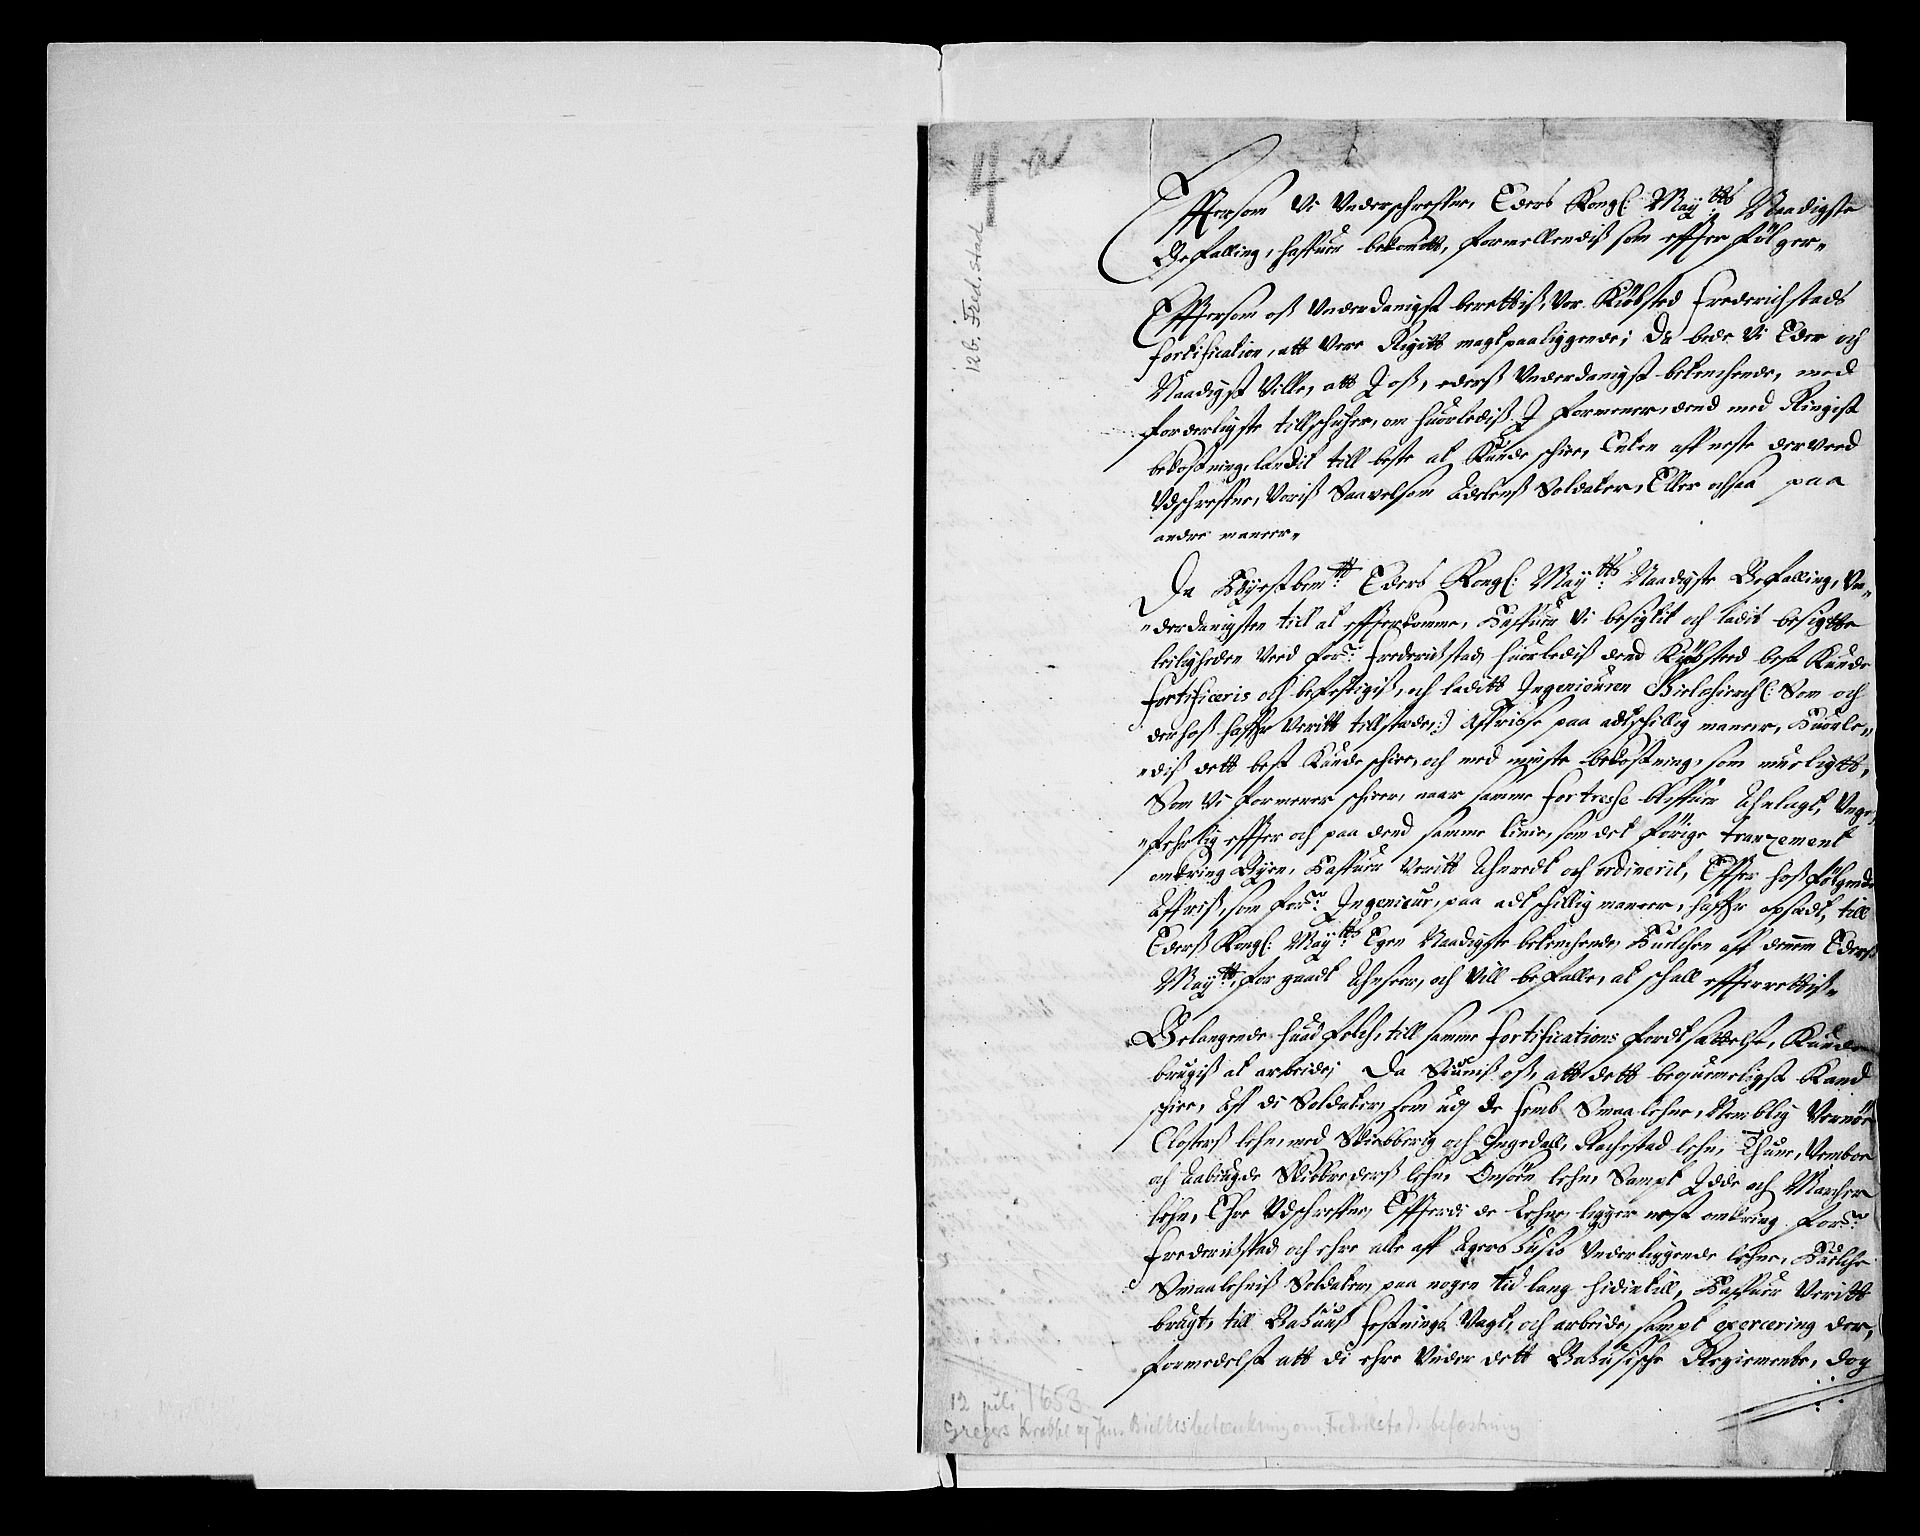 4
12b. Fred.stad
Effthersom Vi Underschreffne, Eders Kongl: May:tts Naadigste
Befalling, haffuer bekomitt, formellendiss som effter følger,
Effthersom oss Underdanigst berettiss, Vor Kiøbsted Frederichstads
fortification, att vere Rigitt magtpaaliggende; Da bede Vi Eder och
Naadigst Ville, att I oss, ederss Underdanigst betenchende, med
forderligste tillschicher, om huorlediss I formener, dend med Ringist
bekostning, landit till beste at kunde schee, Enten aff neste derveed
Udschreffne, Voriss Saavelsom Adelens Soldater, Eller ochsaa paa
andre maneer,
Da Høyestbem:te Eders Kongl: May:tts Naadigste Befalling, Un-
-derdanigsten till at efftterkomme, Haffuer Vi besigtit och ladit besigtte
leiligheden Veed for:ne Frederichstad, huorlediss dend Kiøbsted best kunde
fortificeris och befestigiss, och laditt Ingenieuren (: Som och
derhoss haffr Veritt tillstede:) affridse paa adtschillig maneer, Huorle-
-diss dett best kunde schee, och med minste bekostning, som mueligtt,
Som Vi formener scheer, naar samme fortresse bliffuer Anlagt, Unge-
-fehrlig effter och paa dend samme linie, som det forige
omkring Byen, haffuer Veritt Anvedt och ordinerit, Effter hossfølgende
Affriss, som for:ne Ingenieur, paa adtschillig maneer, haffr opsadt, till
Ederss Kongl: May:tts Egen Naadigste betenchende, Huilchen aff dennem Ederss
May:tt for gaadt Anseer, och Vill befalle, at schall effterrettiss,
Belangende huad folch, till samme fortifications fordtsættelse, kunde
brugiss at arbeide; Da Siuniss oss, att dett bequemeligst kand
schee, Aff de Soldater, som udj de femb Smaa lehne, Nemblig Vernøe
Closters lehn, med Skiebberig och Ingedall, Rachestad lehn, Thune, Vembøe
och Aabiugde Skibrederss lehn, Onsøen lehn, Sampt Idde och Marcher
lehn, Ehre Udschreffne, Effterdi de Lehne, ligger nest omkring for:ne
Frederichstad, och ehre alle aff Agers Husis Underliggende lehne, Huilche
Smaalehniss Soldater, paa nogen tid lang hidintill, Haffuer Veritt
brugt, till Bahuuss festnings Vagt, och arbeide, sampt exercering der,
formedelst att di ehre Under dett Bahusische Regiemente, dog
12 juli 1653
Gregers Krabbe og Jens Bielkes betænkning om Fredrikstads befæstning